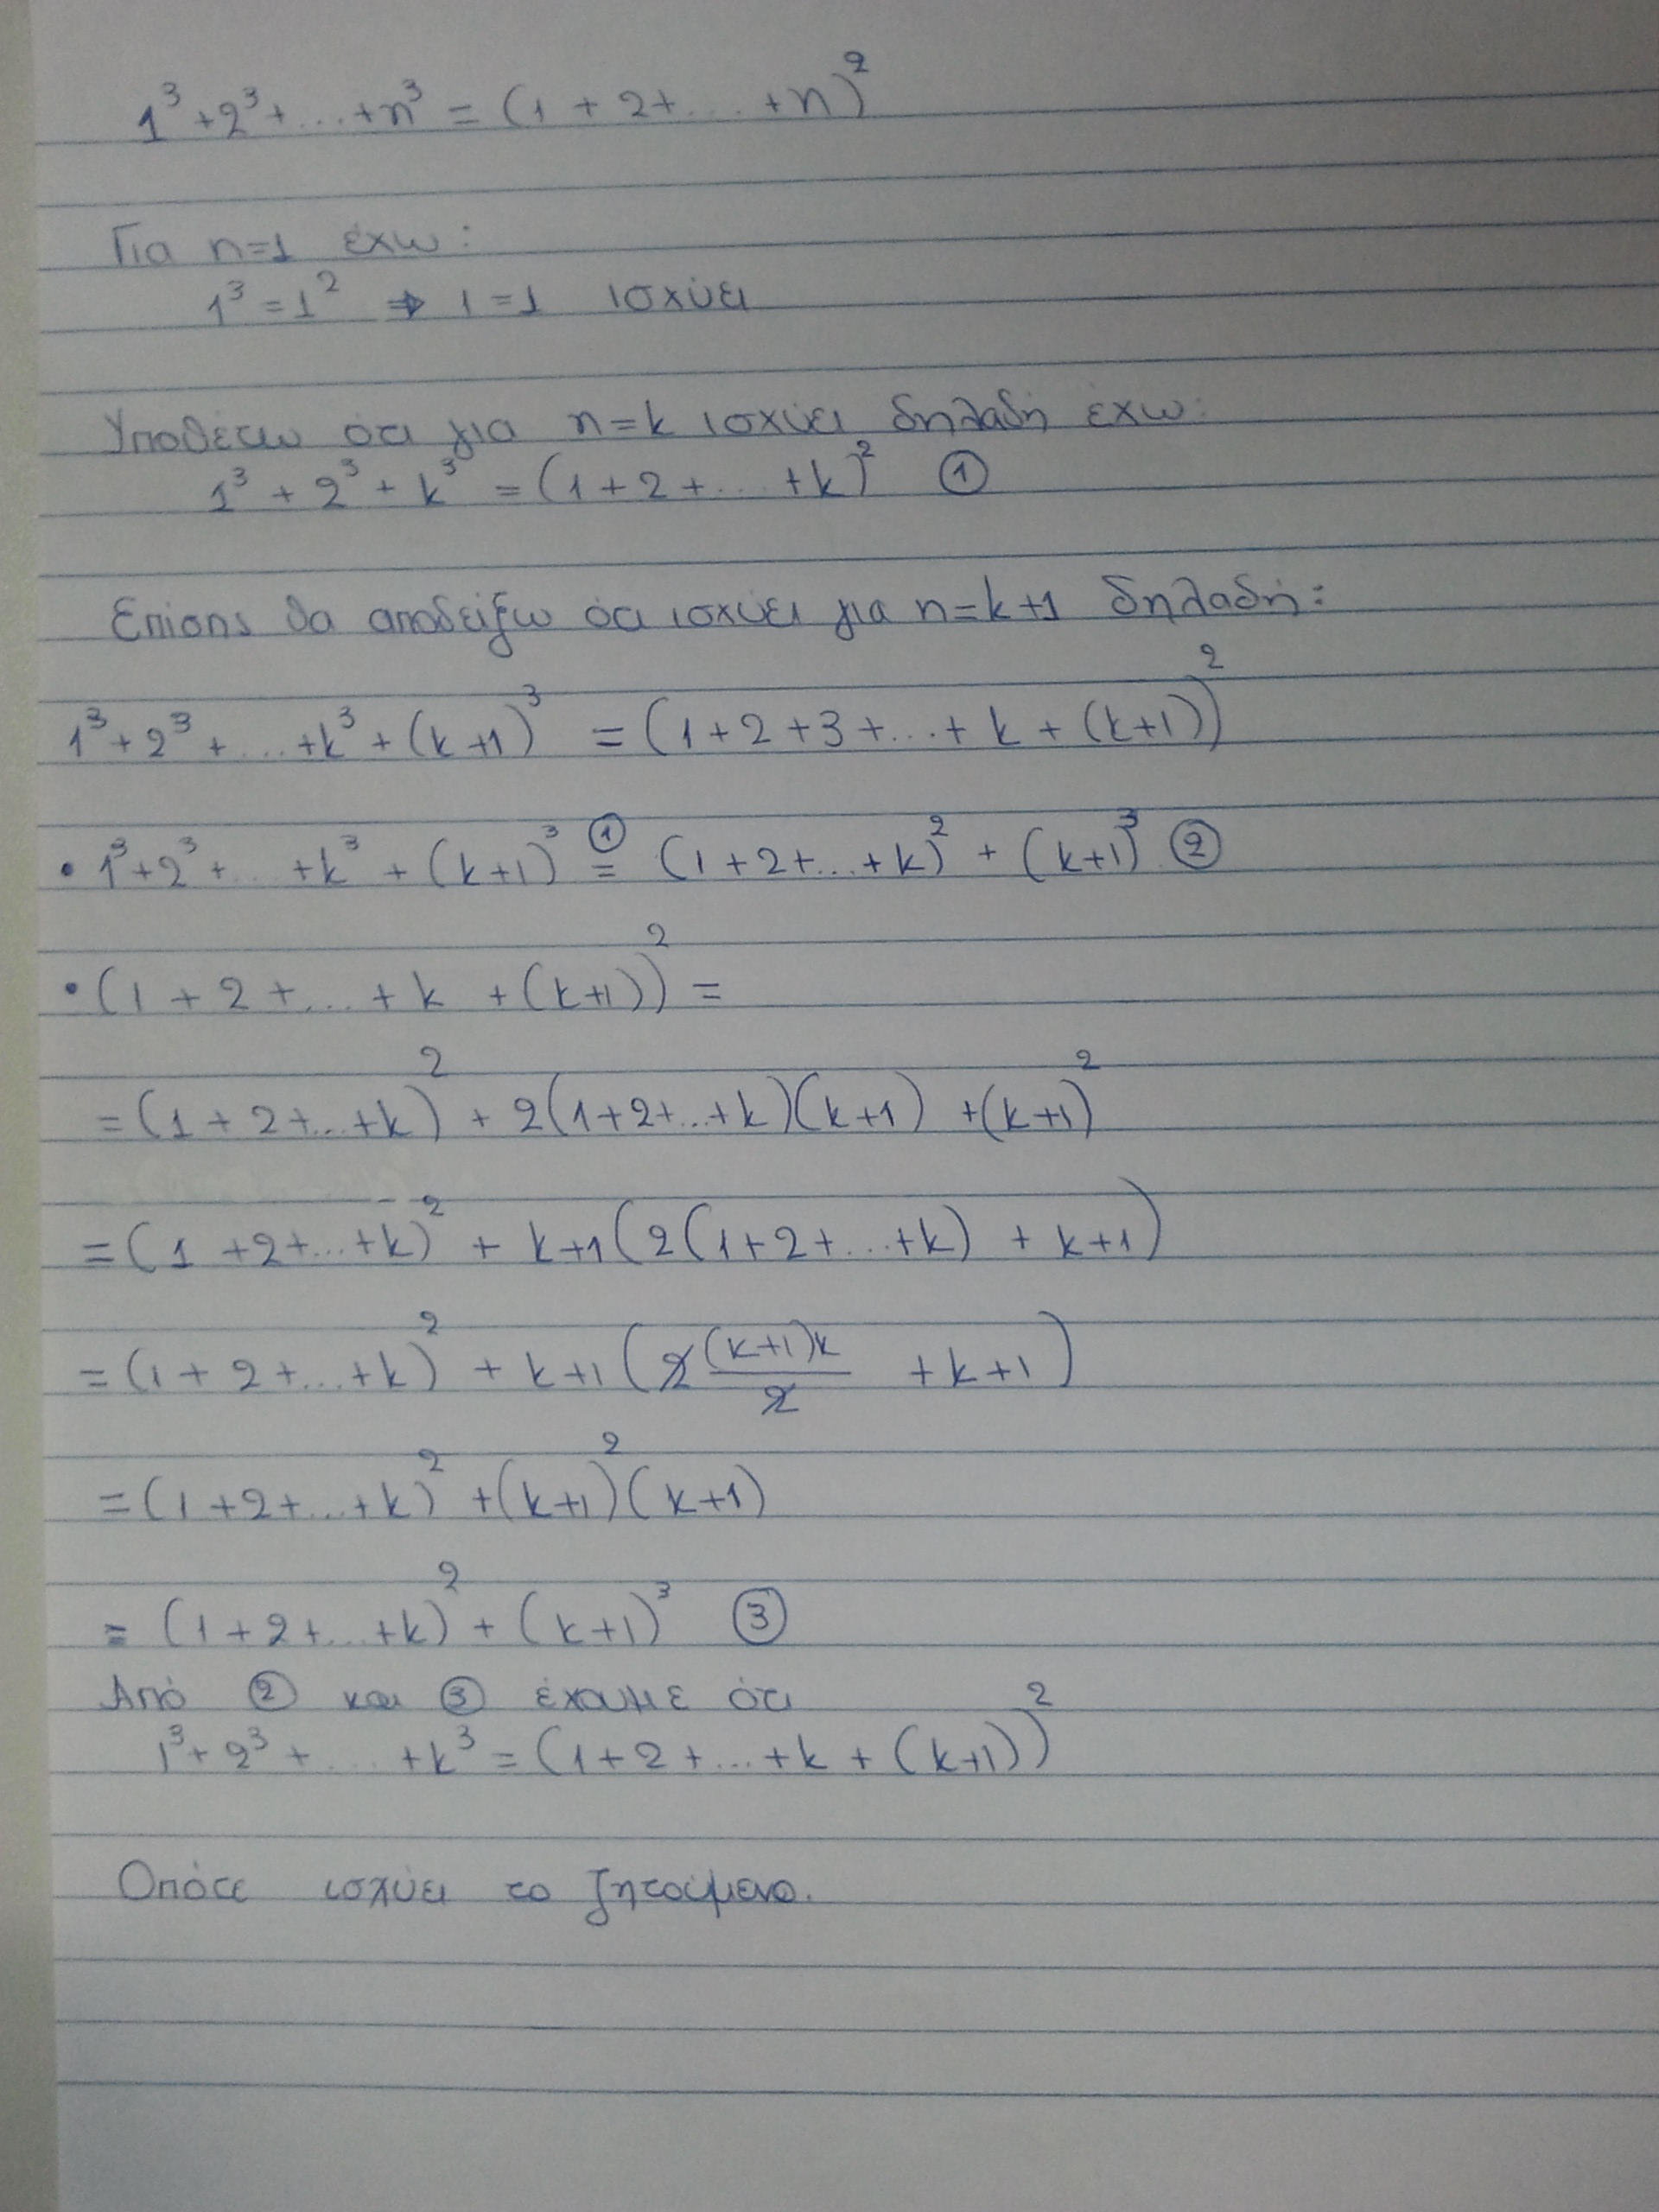 1³+2³+...+n³ = (1 + 2+... +n)²
Για n=1 έχω:
1³ = 1² ⇒ 1 = 1 ισχύει
Υποθέτω ότι για n=k ισχύει δηλαδή έχω:
1³ + 2³ + k³ = (1+2+... +k)² ①
Επίσης θα αποδείξω ότι ισχύει για n=k+1 δηλαδή:
1³+2³ +...+k³+(k+1)³ = (1+2+3+...+ k + (k+1))²
• 1³+2³+... +k³ + (k+1)³ ①= (1+2+...+k)² + (k+1)³ ②
• (1 + 2 +... + k + (k+1))² =
= (1 + 2+...+k)² + 2(1+2+...+k)(k+1) +(k+1)²
= (1 +2+...+k)² + k+1(2(1+2+...+k) + k+1)
= (1+2+...+k)² + k+1(2 (k+1)k/2 + k+1)
= (1+2+...+k)² +(k+1)²(k+1)
= (1+2+...+k)² + (k+1)³ ③
Από ② και ③ έχουμε ότι
1³+2³+... +k³ = (1+2+...+k + (k+1))²
Οπότε ισχύει το ζητούμενο.